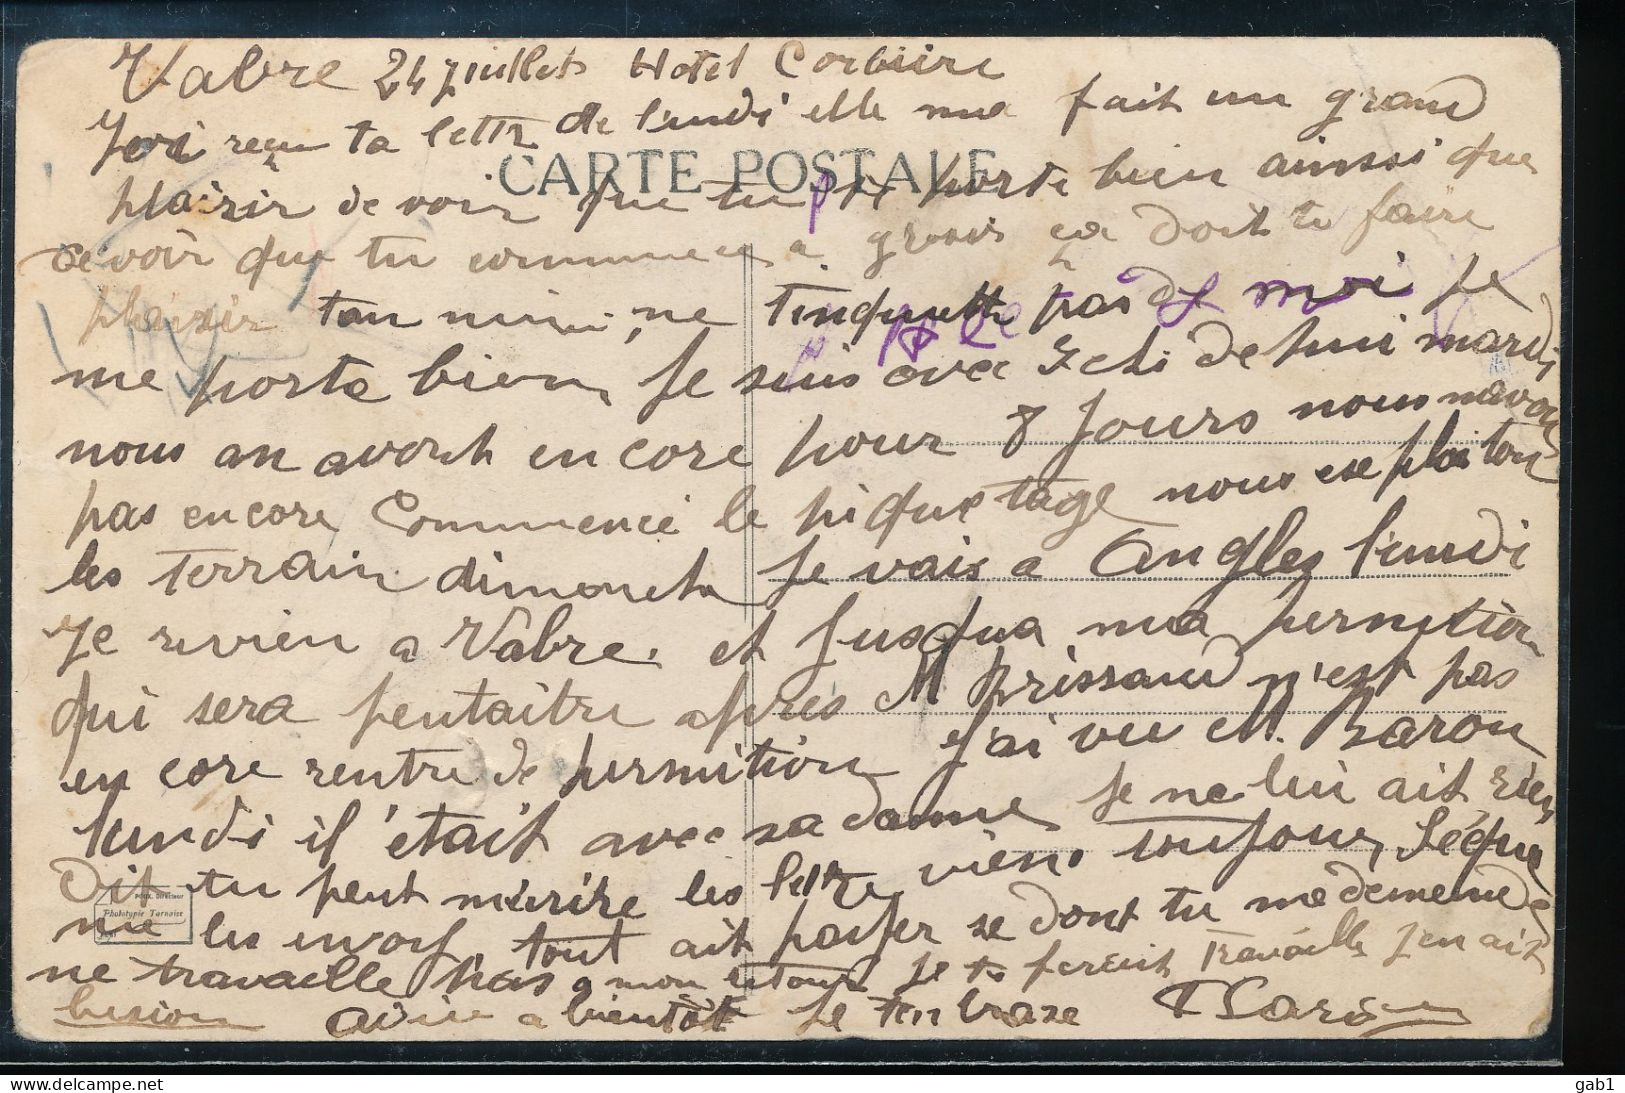 Vabre 24 juillets Hotel Corbière
Jai reçu ta lettr de lundi elle ma fait un grand
CARTE POSTALE
plaisir de voir que tu te porte bien ainssi que
de voir que tu commence a grosir ça doit te faire
plaisir ton mimi, ne tinquette pas de moi je
me porte bien, je suis avec depui mardi
nous an avont encore pour 8 jours nous navons
pas encore Commencé le piquetage nous exploiton
les terrain dimonche je vais a Anglès lundi
je revien a Vabre. et jusqua ma permition
qui sera peutaitre après M Brissaud n'est pas
encore rentre de permition j'ai vu M. Baron
lundi il était avec sa dame je ne lui ait rien
dit tu peut mécrire les lettre viens toujour,
POUX, Directeur
Phototypie Tarnaise
me les envoi tout ait passer se dont tu me demende
ne travaille pas a mon retour je te ferait travaille j'en ait
besion a bientôt je ten brase